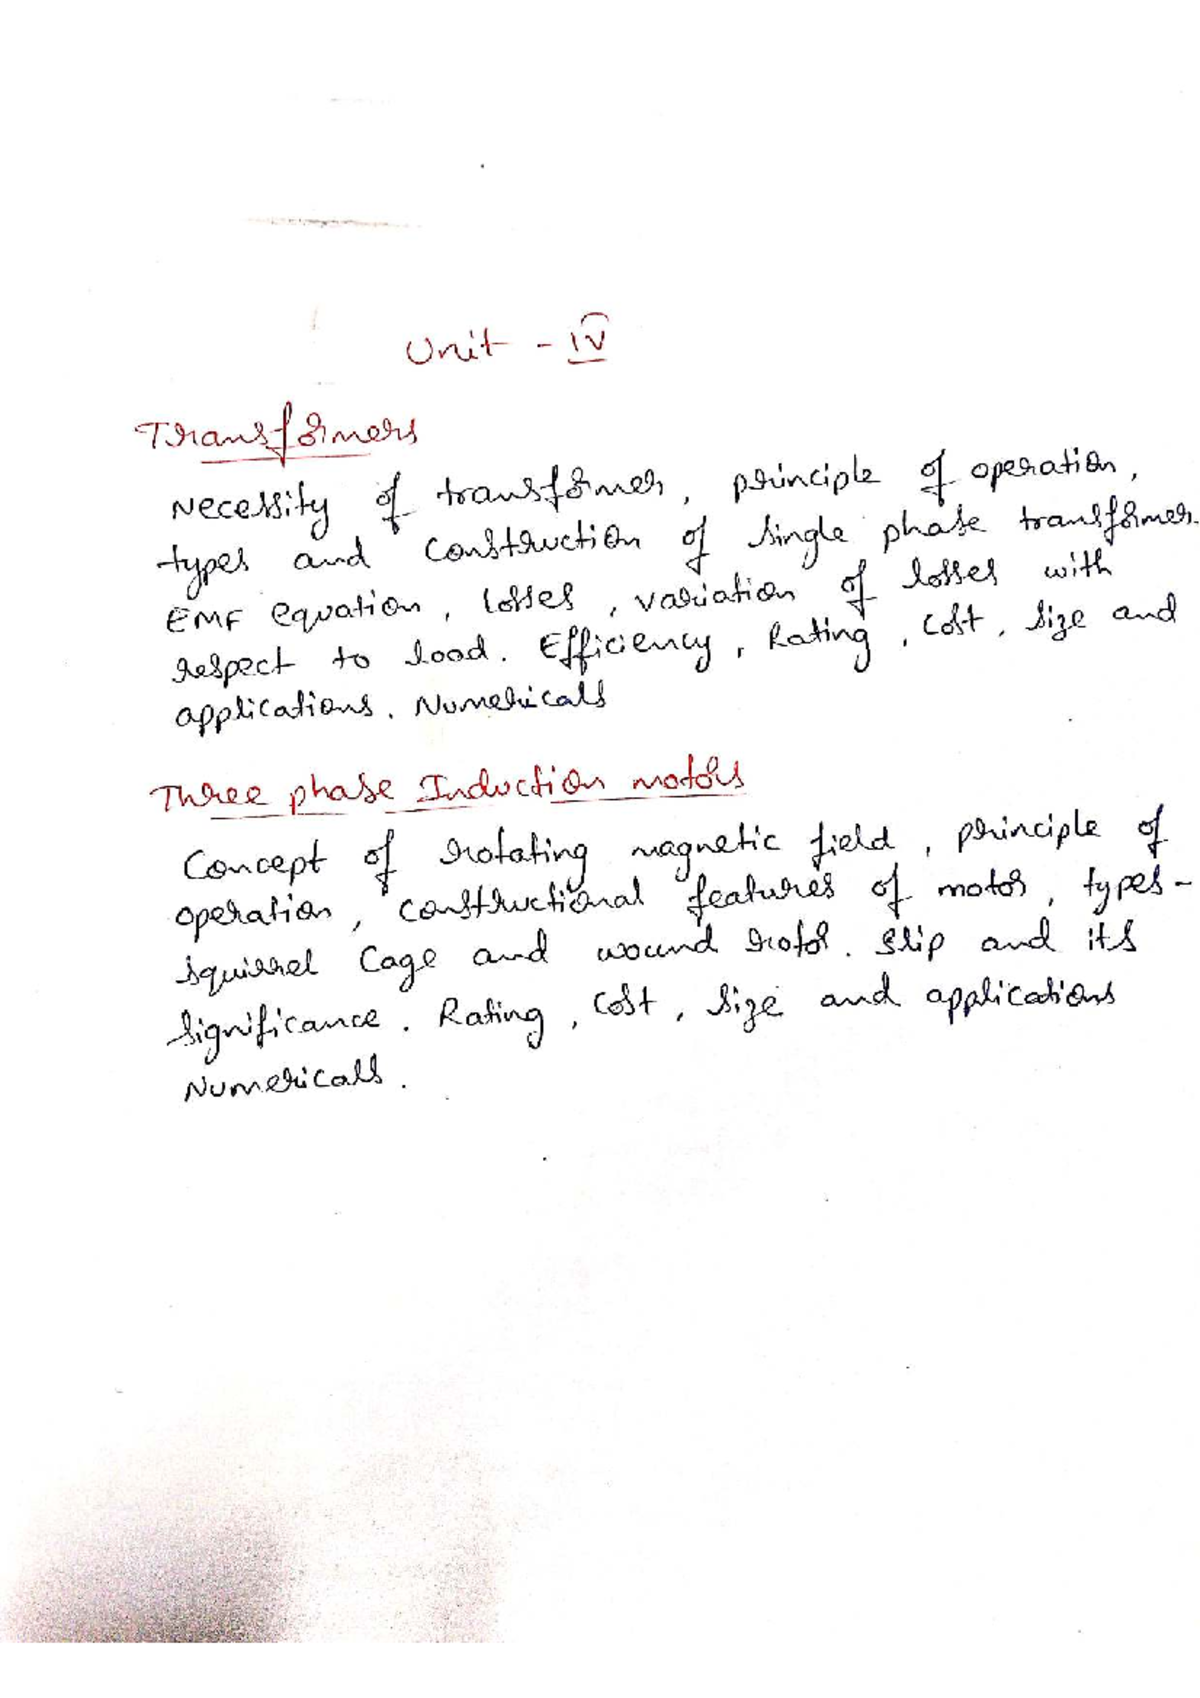 Unit - IV
Transformers
Necessity of transformer, principle of operation,
types and construction of single phase transformer.
EMF equation, losses, variation of losses with
respect to load. Efficiency, Rating, cost, size and
applications. Numericals
Three phase Induction motors
Concept of rotating magnetic field, principle of
operation, constructional features of motor, types-
squirrel cage and wound rotor. slip and its
significance. Rating, cost, size and applications
Numericals.